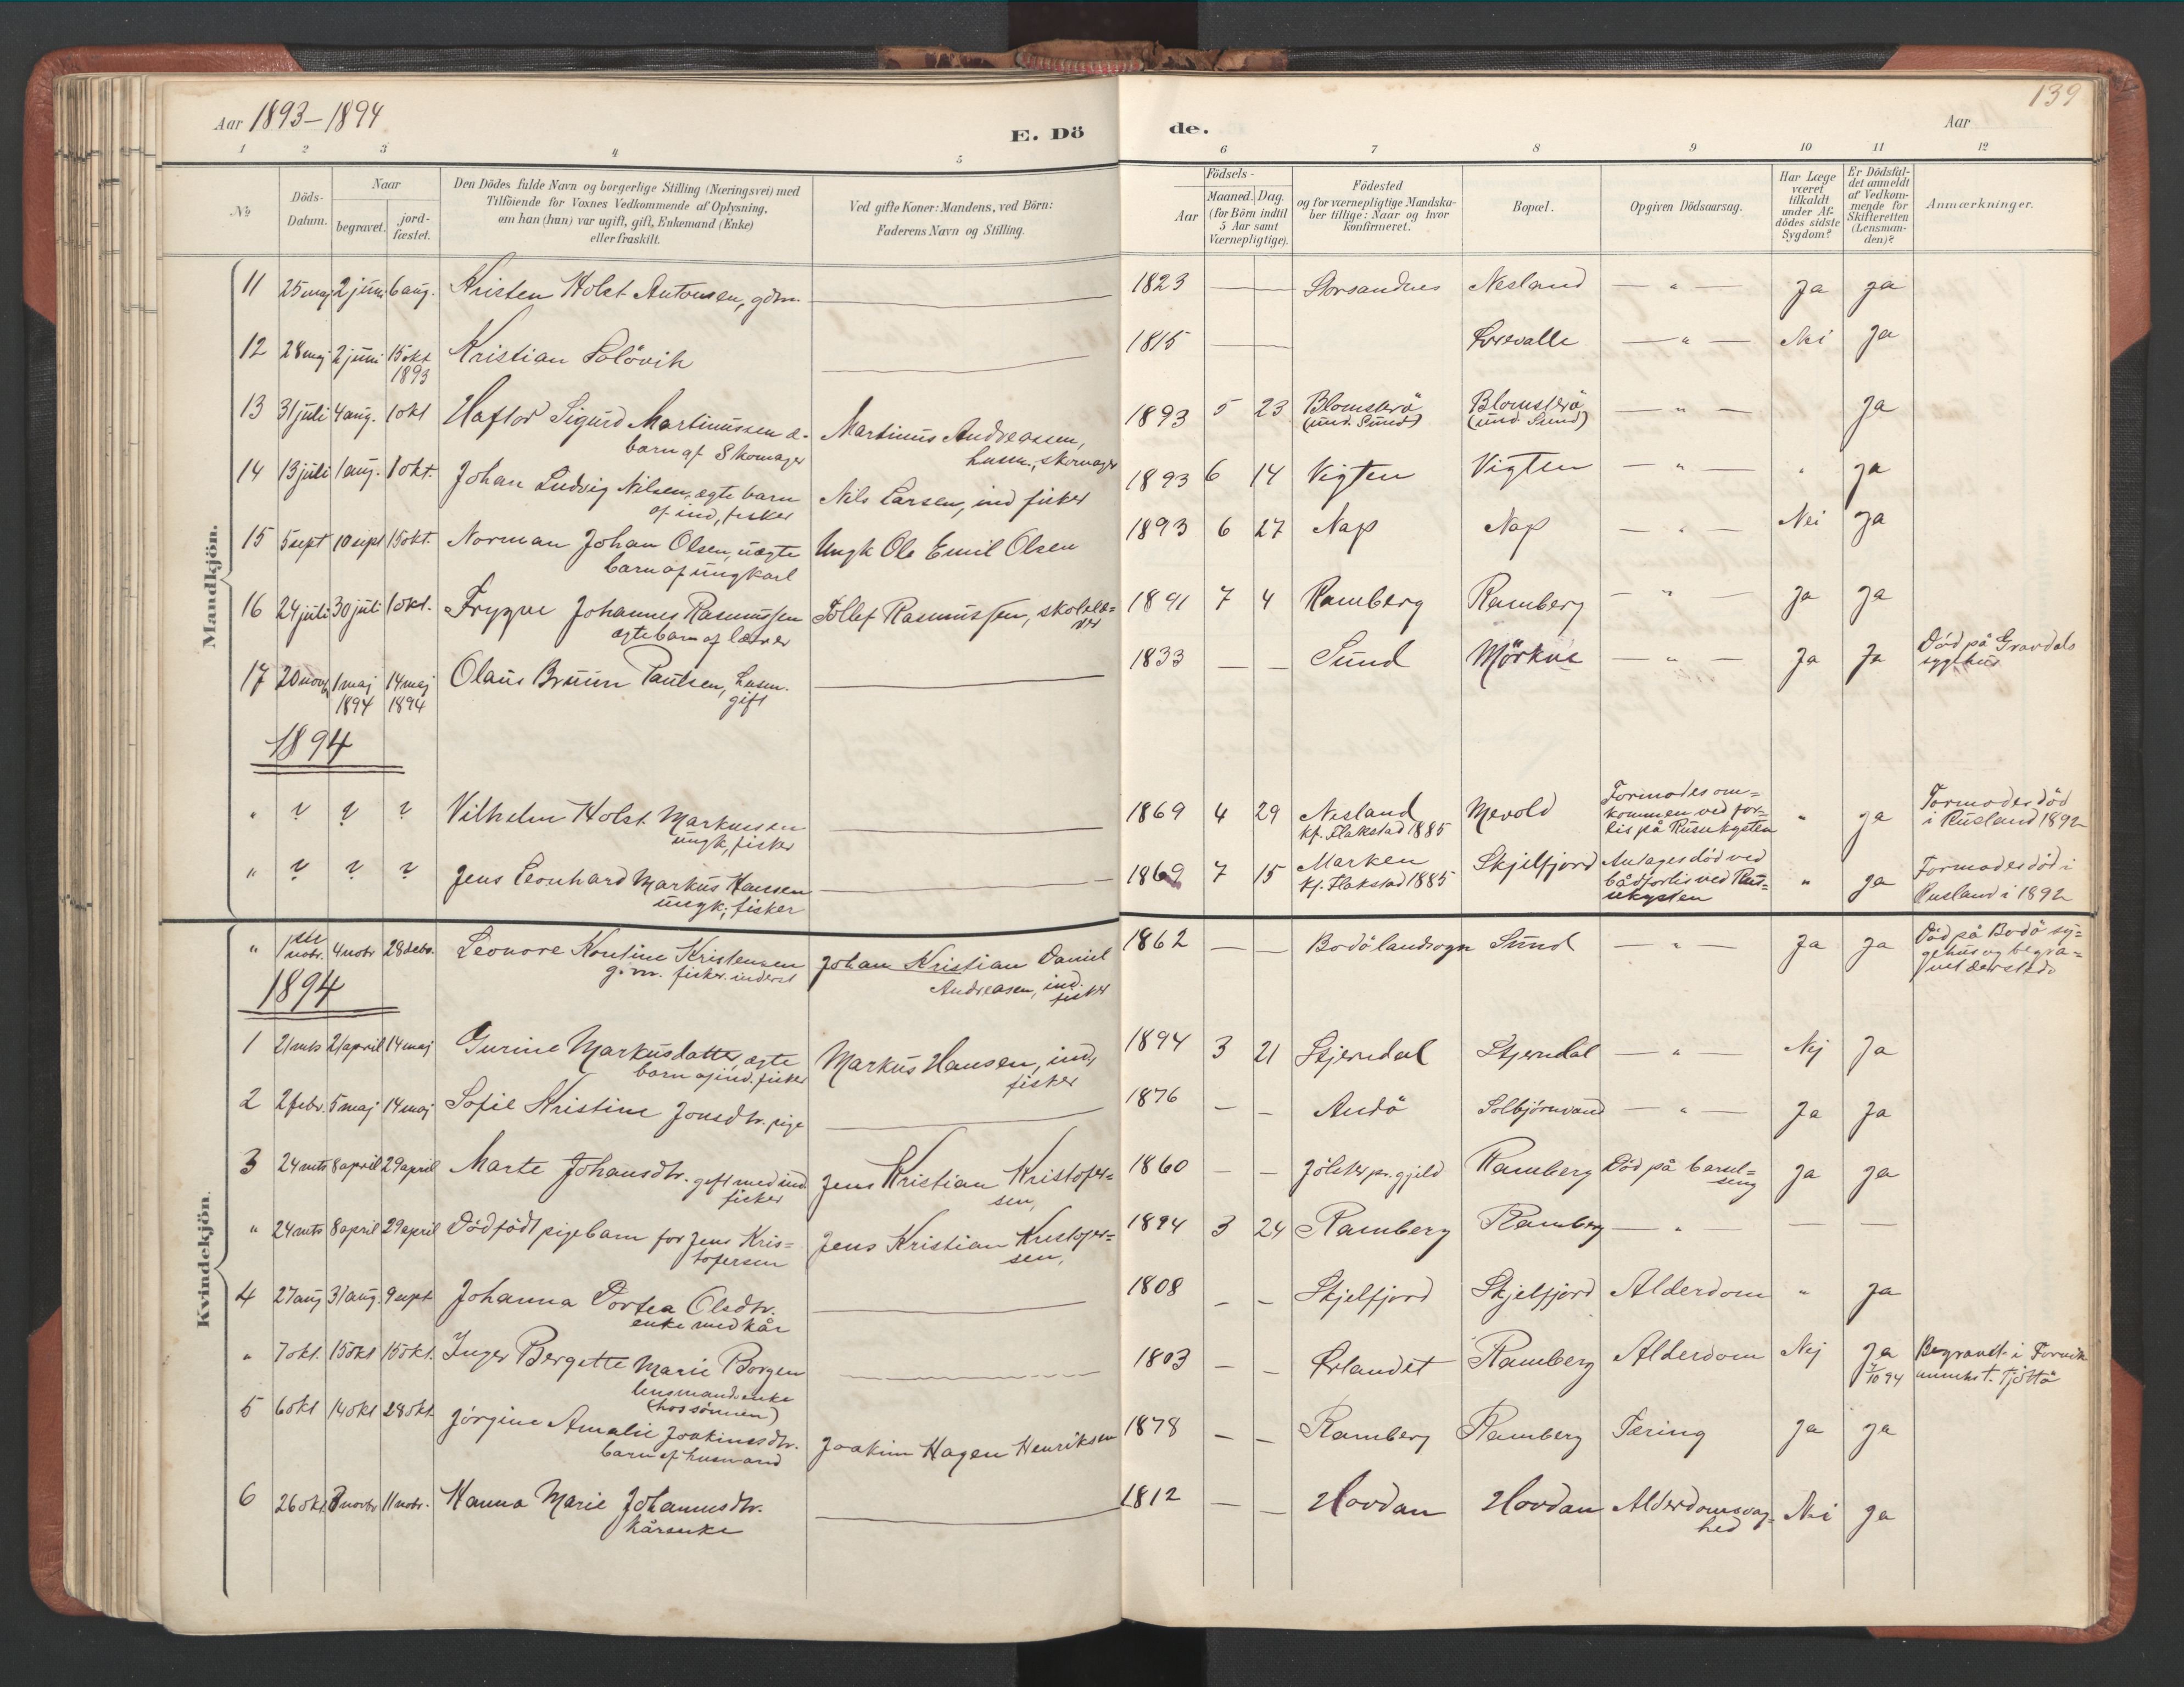 Aar 1893–1894
E. Dö
de.
Aar
139
1 2 3 4 5 6 7 8 9 10 11 12
No
Döds-Datum.
Naar
begravet.
jord-fæstet.
Den Dödes fulde Navn og borgerlige Stilling (Næringsvei) med
Tilföiende for Voxnes Vedkommende af Oplysning,
om han (hun) var ugift, gift, Enkemand (Enke)
eller fraskilt.
Ved gifte Koner: Mandens, ved Börn:
Faderens Navn og Stilling.
Födsels-
Aar
Maaned. Dag.
(for Börn indtil
5 Aar samt
Værnepligtige).
Födested
og for værnepligtige Mandska-
ber tillige: Naar og hvor
konfirmeret.
Bopæl.
Opgiven Dödsaarsag.
Har Læge
været
tilkaldt
under Af-
dödes sidste
Sygdom?
Er Dödsfal-
det anmeldt
af Vedkom-
mende for
Skifteretten
(Lensman-
den)?
Anmærkninger.
Mandkjön.
11 25 maj 2 juni 6 aug. Kristen Holst Antonsen, gdm. — 1823 — — Storsandnes Nesland — " — Ja Ja
12 28 maj 2 juni 15 okt 1893 Kristian Solövik — 1815 — — — " — Nei Ja
13 31 juli 4 aug. 1 okt Haftor Sigurd Martinussen æ.
barn af Skomager
Martinus Andreassen,
husm., skomager
1893 5 23 Blomsterö
(und. Sund)
Blomsterö
(und Sund)
— " — Ja
14 13 juli 1 aug. 1 okt. Johan Ludvig Nilsen, ægte barn
af ind, fisker
Nils Larsen, ind fisker 1893 6 14 Vigten Vigten — " — " Ja
15 5 sept 10 sept 15 okt. Norman Johan Olsen, uægte
barn af ungkarl
Ungk Ole Emil Olsen 1893 6 27 Nap Nap — " — Nei Ja
16 24 juli 30 juli 1 okt. Trygve Johannes Rasmussen
ægte barn af lærer
Tollef Rasmussen, skolelæ=
rer
1891 7 4 Ramberg Ramberg — " — Ja Ja
17 20 novb 1 maj 1894 14 maj 1894 Olaus Bruun Paulsen, husm.
gift
— 1833 — — Sund Mörkve — " — Ja Ja Död på Gravdals
sygehus
1894
" ? ? ? Vilhelm Holst Markussen
ungk, fisker
— 1869 4 29 Nesland
kf. Flakstad 1885
Mevold
Formodes om=
kommen ved for=
lis på Russekysten
" Ja
Formodes död
i Rusland 1892
" ? ? ? Jens Leonhard Markus Hansen
ungk; fisker
— 1869 7 15 Marken
kf. Flakstad 1885
Skjelfjord
Antages död ved
bådforlis ved Rus=
sekysten
" Ja
Formodes död i
Rusland i 1892
Kvindekjön.
" 1 nobr. 4 nobr 28 debr. Leonore Kristensen
g. m. fisker. inderst
Johan Kristian Daniel
Andreasen, ind.
fisker
1862 — — Bodö landsogn Sund — " — Ja Ja
Död på Bodö sy=
gehus og begra=
vet dersteds
1894
1 21 mts 21 april 14 maj Gurine Markusdatter, ægte
barn af ind. fisker
Markus Hansen, ind,
fisker
1894 3 21 Stjerndal Stjerndal — " — Nej Ja
2 2 febr. 5 maj 14 maj Sofie Kristine Jonsdtr. pige — 1876 — — Andö Solbjørnvand — " — Ja Ja
3 24 mts 8 april 29 april Marte Johansdtr. gift med ind.
fisker
Jens Kristian Kristofer=
sen,
1860 — — Jölster pr. gjeld Ramberg Död på barsel=
seng
Ja Ja
" 24 mts 8 april 29 april Dödfödt pigebarn for Jens Kris=
tofersen
Jens Kristian Kristofer=
sen,
1894 3 24 Ramberg Ramberg — " — — —
4 27 aug 31 aug. 9 sept Johanna Dortea Olsdtr.
enke med kår
— 1808 — — Skjelfjord Skjelfjord Alderdom " Ja
" 7 okt. 15 okt 15 okt. Inger Bergette Marie Borgen
lensmandsenke
(hos sönnen)
— 1803 — — Ørlandet Ramberg Alderdom Nej Ja
7/10 94
Begravet i Forvik
annekst. Tjöttö
5 6 okt 14 okt 28 okt Jörgine Amalie Joakimsdtr.
barn af husmand
Joakim Hagen Henriksen 1878 — — Ramberg Ramberg Tæring Ja Ja
6 26 okt 8 novbr 11 nobr. Hanna Marie Johannesdtr.
kårenke
— 1812 — — Hovdan Hovdan Alderdomsvag=
hed
Nei Ja